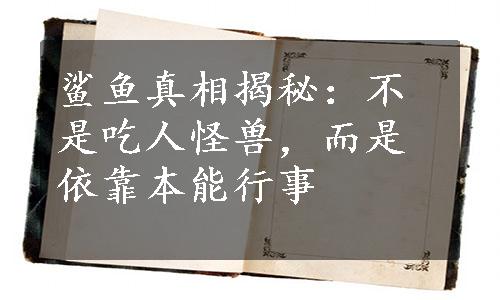 鲨鱼真相揭秘：不
是吃人怪兽，而是
依靠本能行事